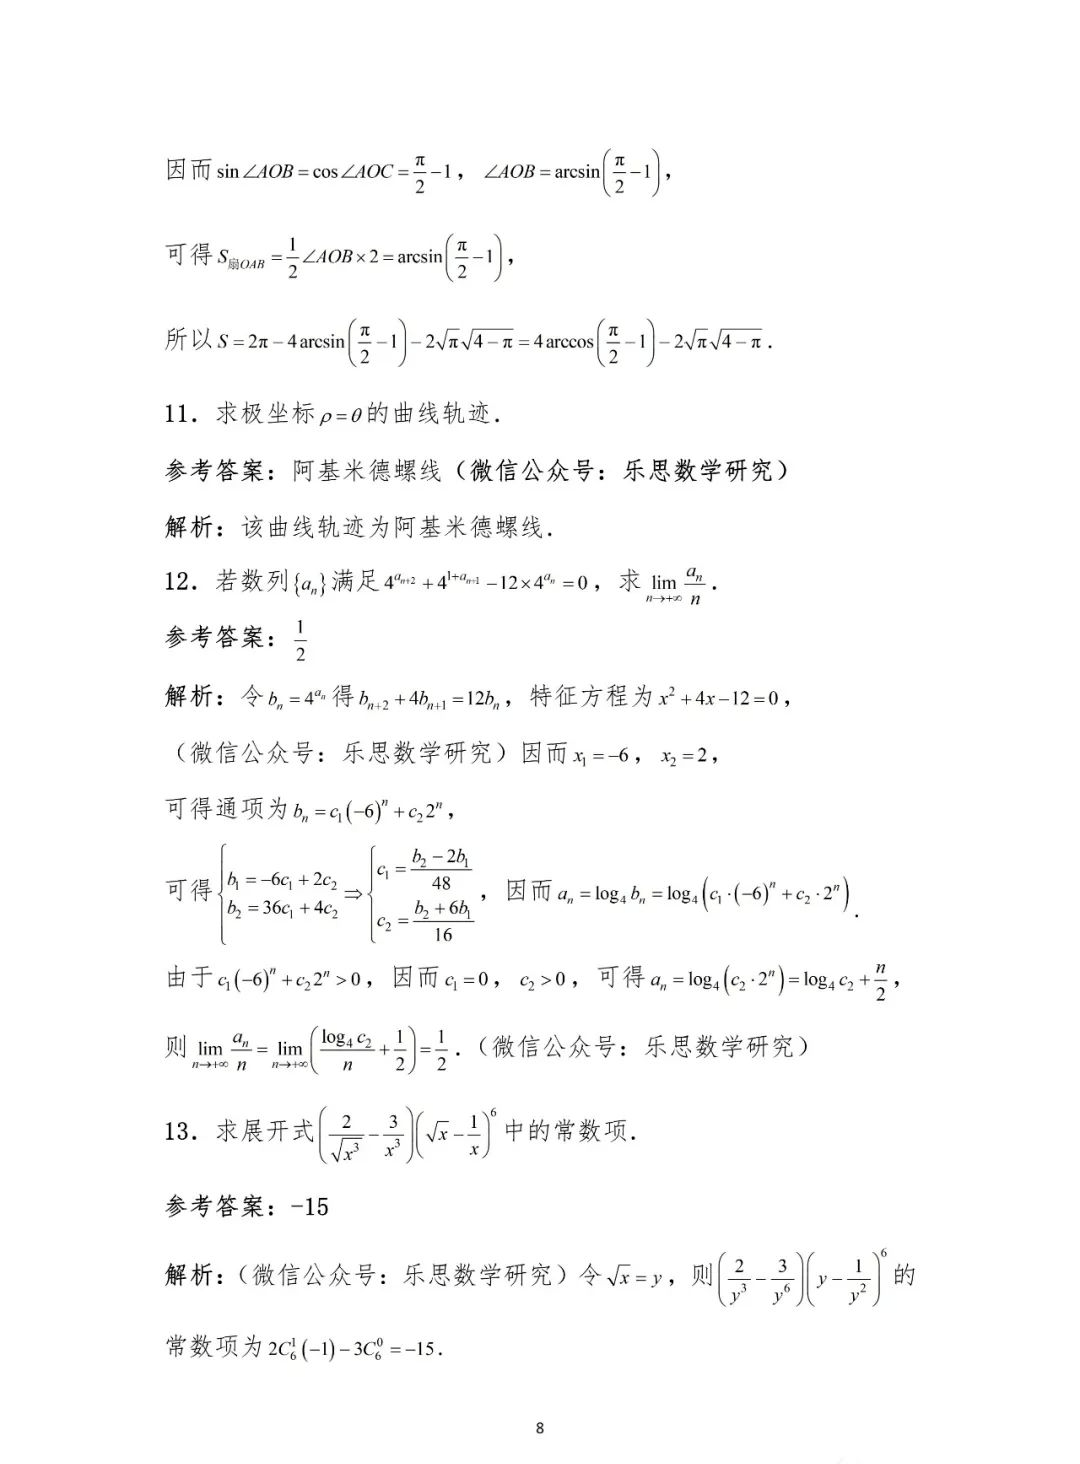 因而 sin∠AOB = cos∠AOC = π/2 − 1， ∠AOB = arcsin(π/2 − 1)，
可得 S扇OAB = 1/2 ∠AOB × 2 = arcsin(π/2 − 1)，
所以 S = 2π − 4arcsin(π/2 − 1) − 2√π√(4 − π) = 4arccos(π/2 − 1) − 2√π√(4 − π)．
11．求极坐标 ρ = θ 的曲线轨迹．
参考答案：阿基米德螺线（微信公众号：乐思数学研究）
解析：该曲线轨迹为阿基米德螺线．
12．若数列{aₙ}满足 4^(a_{n+2}) + 4^(1+a_{n+1}) − 12 × 4^(a_n) = 0，求 lim_{n→+∞} a_n/n．
参考答案：1/2
解析：令 b_n = 4^(a_n) 得 b_{n+2} + 4b_{n+1} = 12b_n，特征方程为 x² + 4x − 12 = 0，
（微信公众号：乐思数学研究）因而 x₁ = −6， x₂ = 2，
可得通项为 b_n = c₁(−6)^n + c₂2^n，
可得 { b₁ = −6c₁ + 2c₂ ; b₂ = 36c₁ + 4c₂ ⇒ { c₁ = (b₂ − 2b₁)/48 ; c₂ = (b₂ + 6b₁)/16 ，因而 a_n = log₄ b_n = log₄(c₁·(−6)^n + c₂·2^n)．
由于 c₁(−6)^n + c₂2^n > 0，因而 c₁ = 0， c₂ > 0，可得 a_n = log₄(c₂·2^n) = log₄ c₂ + n/2，
则 lim_{n→+∞} a_n/n = lim_{n→+∞} (log₄ c₂/n + 1/2) = 1/2．（微信公众号：乐思数学研究）
13．求展开式 (2/√(x³) − 3/x³)(√x − 1/x)^6 中的常数项．
参考答案：-15
解析：（微信公众号：乐思数学研究）令 √x = y，则 (2/y³ − 3/y⁶)(y − 1/y²)^6 的
常数项为 2C₆¹(−1) − 3C₆⁰ = −15．
8